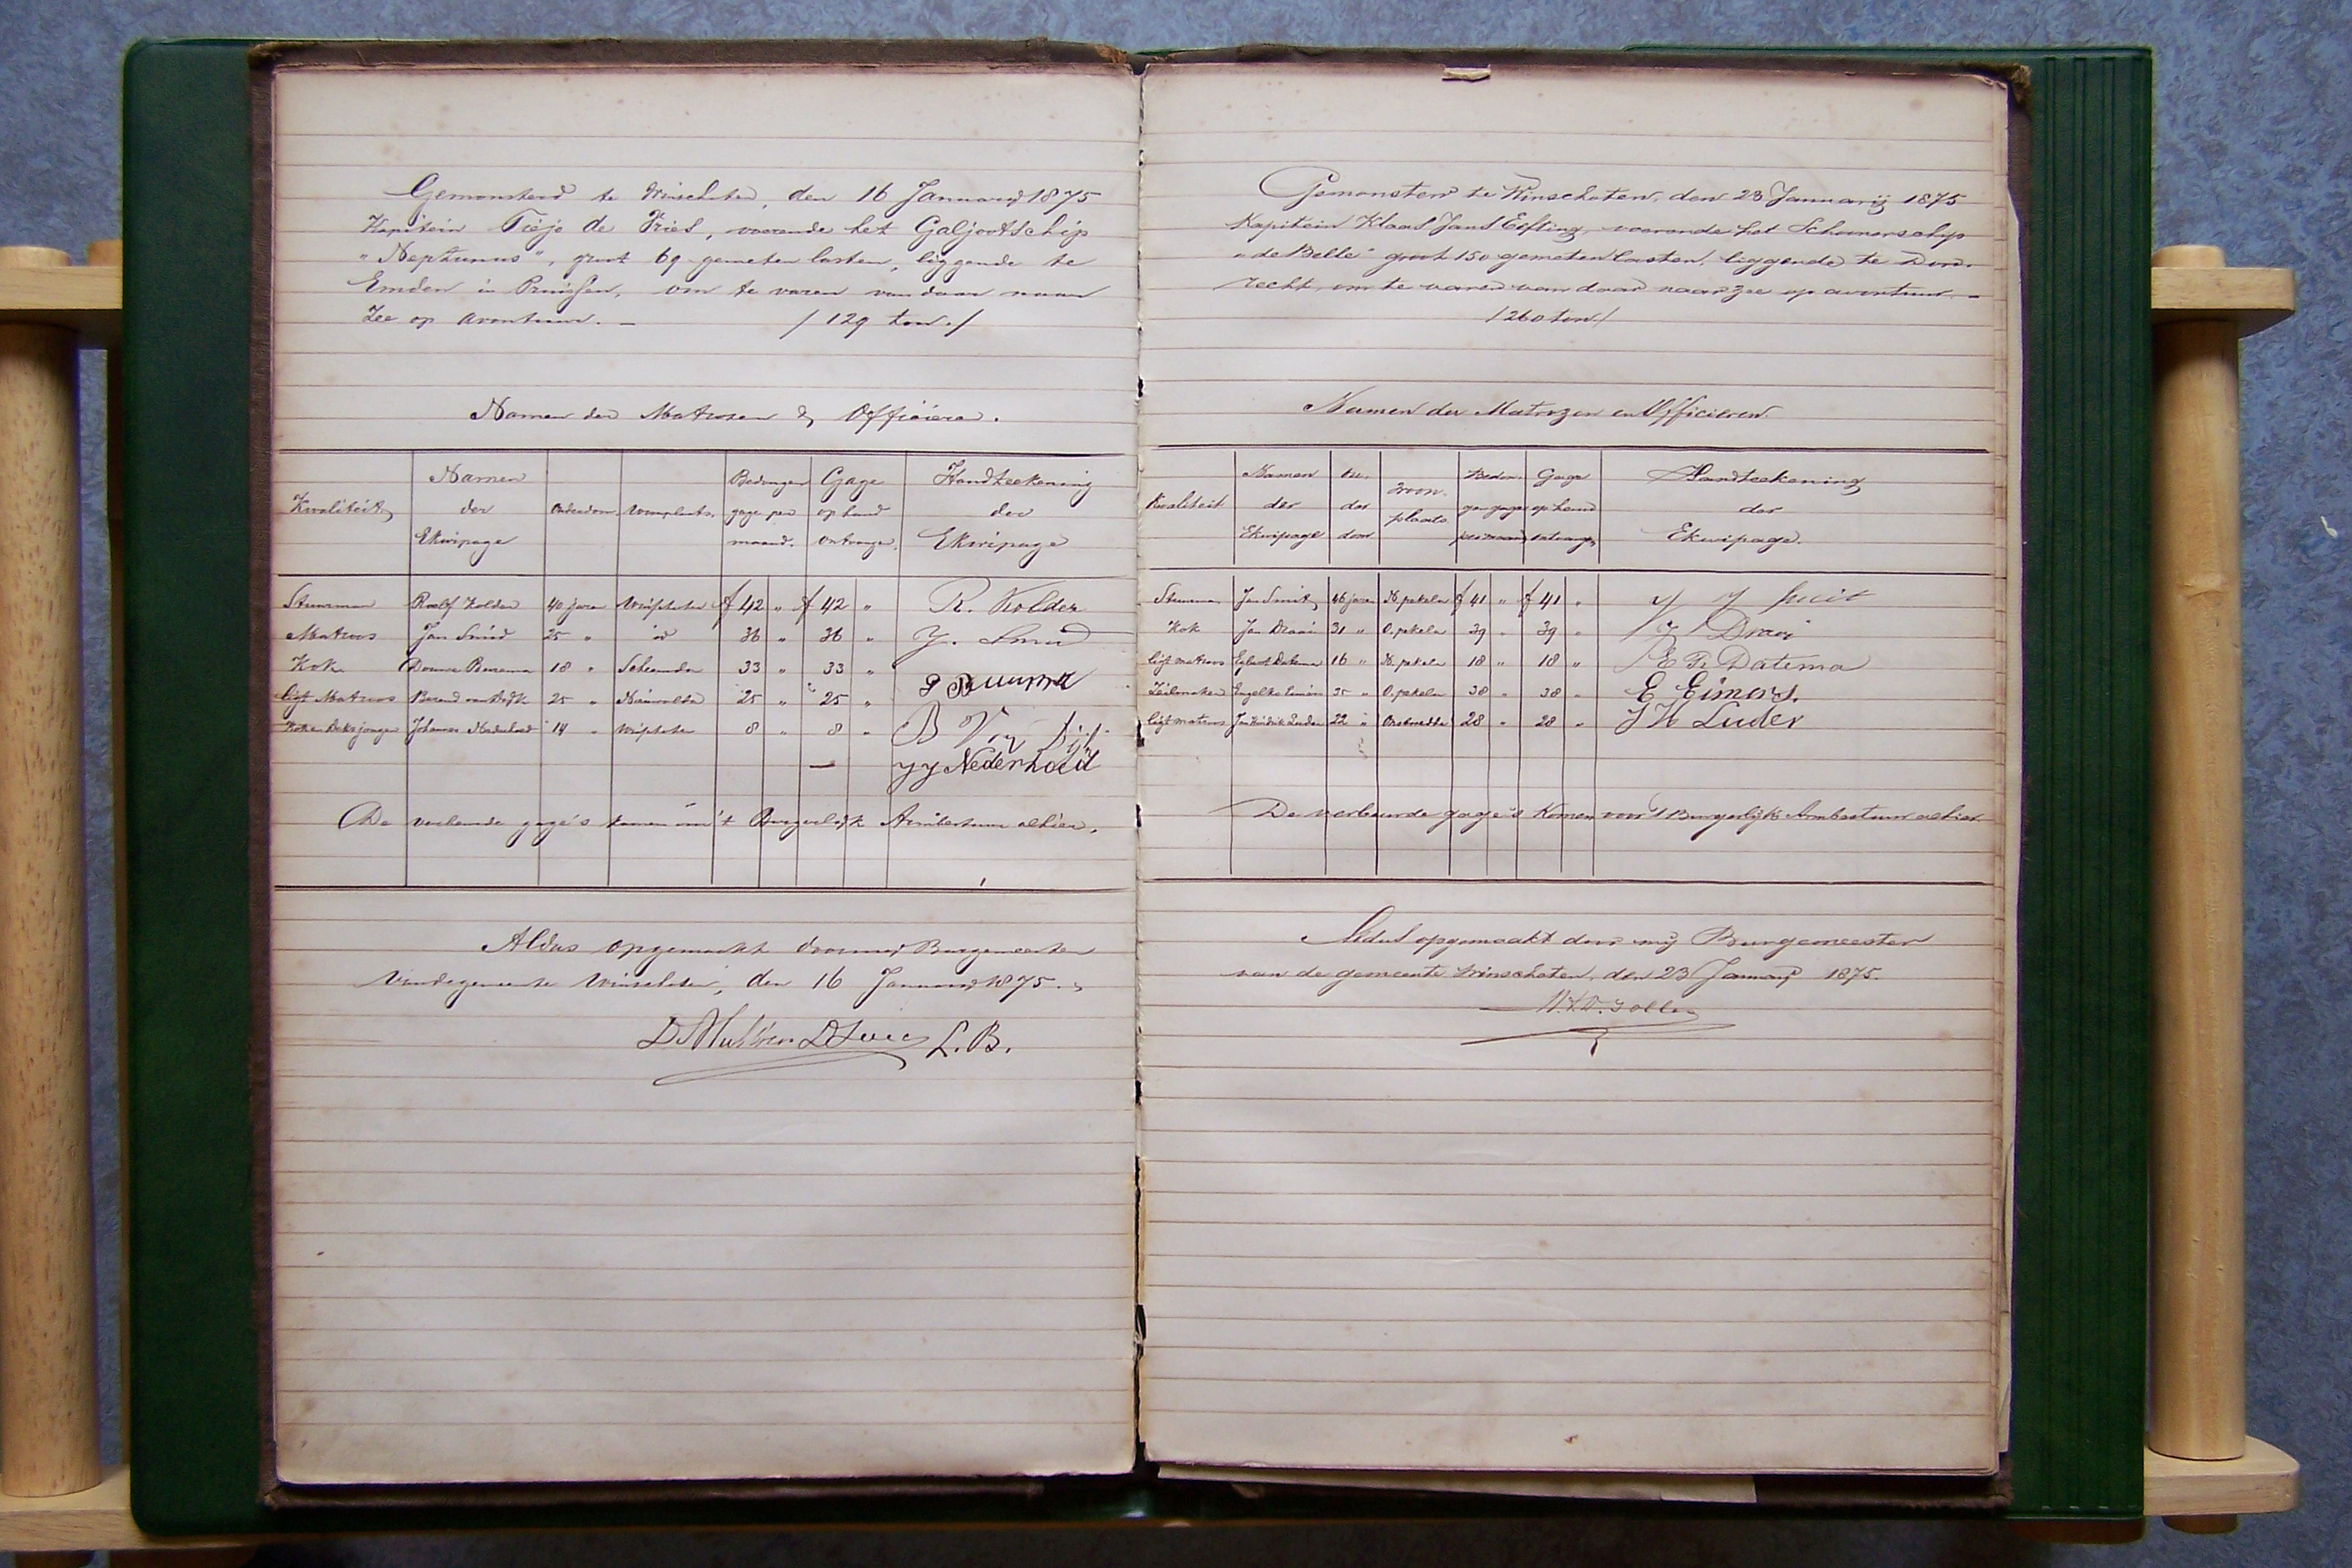 Gemonsterd te Winschoten, den 16 Januarij 1875
Kapitein Tieje de Vries, voerende het Galjootschip
"Neptunus", groot 69 gemeten lasten, liggende te
Emden in Pruissen, om te varen van daar naar
Zee op avontuur. — / 129 ton. /
Namen der Matrozen & Officieren.
Kwaliteit Namen der Ekwipage Ouderdom. Woonplaats. Bedongen gage per maand. Gage op hand ontvangen. Handteekening der Ekwipage
Stuurman Roelf Kolder 40 jaren Winschoten f 42 " f 42 " R. Kolder
Matroos Jan Smid 25 " id 36 " 36 " J. Smid
Kok Douwe Buurma 18 " Scheemda 33 " 33 " Buurma
ligt Matroos Berend van Dijk 25 " 25 " 25 " B Van Dijk
Koks Deksjongen Johannes Nederhoed 14 " Winschoten 8 " 8 "
— J J Nederhoed
De verbeurde gage's komen voor 't Burgerlijk Armbestuur alhier.
Aldus opgemaakt door mij Burgemeester
van de gemeente Winschoten, den 16 Januarij 1875.
L.B.
Gemonsterd te Winschoten, den 23 Januarij 1875
Kapitein Klaas Jans Eefting, voerende het Schoonerschip
"de Belle" groot 150 gemeten lasten, liggende te Dord-
recht, om te varen van daar naar zee op avontuur. –
/ 260 ton /
Namen der Matrozen en Officieren
Kwaliteit Namen der Ekwipage Ou- der dom Woon- plaats Bedon- gen gage per maand Gage op hand ontvangen Handteekening der Ekwipage.
Stuurman Jan Smit 46 jaren N. pekela f 41 " f 41 " J J Smit
Kok Jan Draai 31 " O. pekela 39 " 39 " J Draai
ligt matroos Egbert Datema 16 " N. pekela 18 " 18 " E Datema
Zeilmaker Engelke Eimers 35 " O. pekela 38 " 38 " E Eimers.
ligt matroos Jan Hindrik Luder 22 " Onstwedde 28 " 28 " J H Luder
De verbeurde gage's komen voor 't Burgerlijk Armbestuur alhier
Aldus opgemaakt door mij Burgemeester
van de gemeente Winschoten, den 23 Januarij 1875.